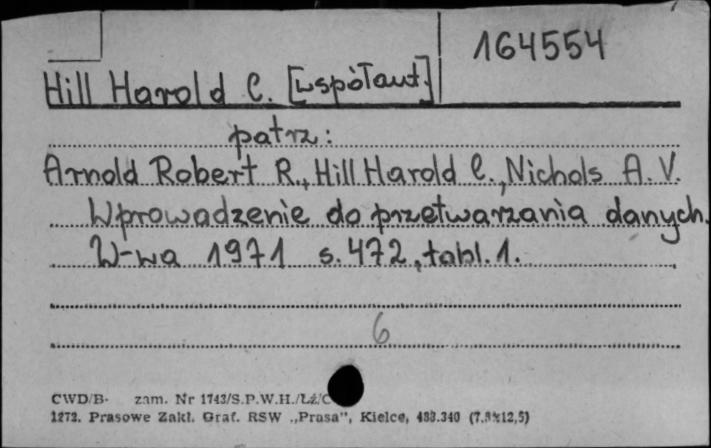 164554
Hill Harold C. [współaut.]
patrz:
Arnold Robert R., Hill Harold C., Nichols A. V.
Wprowadzenie do przetwarzania danych.
W-wa 1971 s. 472, tabl. 1.
6
CWD/B- zam. Nr 1743/S.P.W.H./Łż/C
1272. Prasowe Zakł. Graf. RSW „Prasa", Kielce, 488.340 (7,8x12,5)